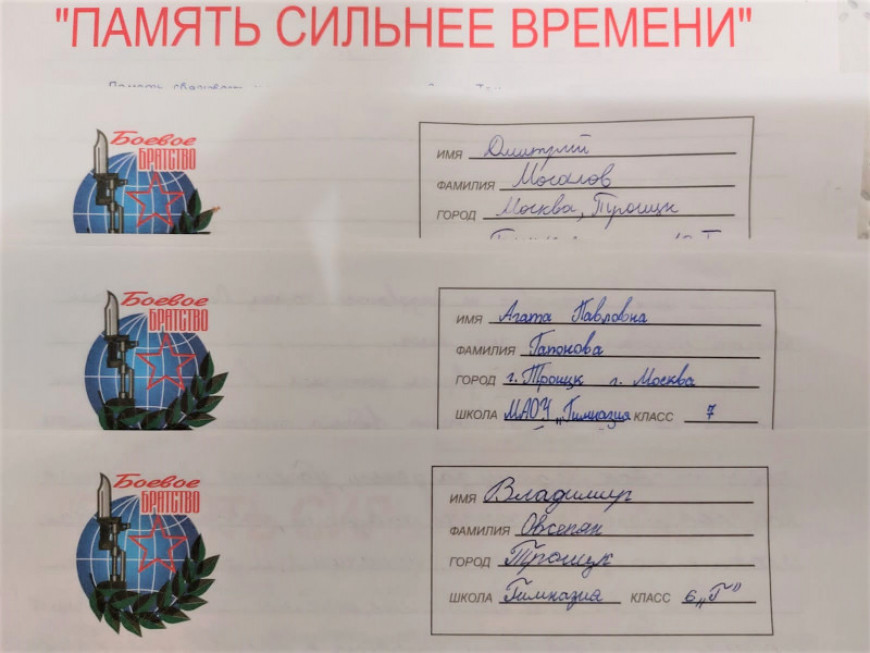 "ПАМЯТЬ СИЛЬНЕЕ ВРЕМЕНИ"
Боевое
БРАТСТВО
ИМЯ Дмитрий
ФАМИЛИЯ Мосалов
ГОРОД Москва, Троицк
Боевое
БРАТСТВО
ИМЯ Агата Павловна
ФАМИЛИЯ Гапонова
ГОРОД г. Троицк г. Москва
ШКОЛА МАОУ „Гимназия КЛАСС 7
Боевое
БРАТСТВО
ИМЯ Владимир
ФАМИЛИЯ Овсепян
ГОРОД Троицк
ШКОЛА Гимназия КЛАСС 6 „Г"